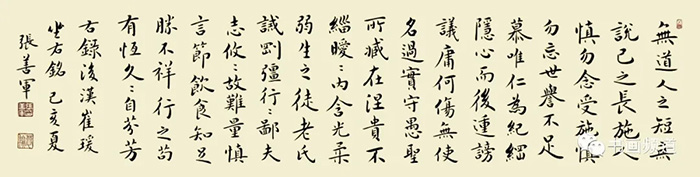 無道人之短無
說己之長施人
慎勿念受施慎
勿忘世譽不足
慕唯仁為紀綱
隱心而後運謗
議庸何傷無使
名過實守愚聖
所臧在涅貴不
緇曖〻內含光柔
弱生之徒老氏
誡剛彊行〻鄙夫
志攸〻故難量慎
言節飲食知足
勝不祥行之苟
有恆久〻自芬芳
右錄後漢崔瑗
坐右銘 己亥夏
張善軍
书画陕西